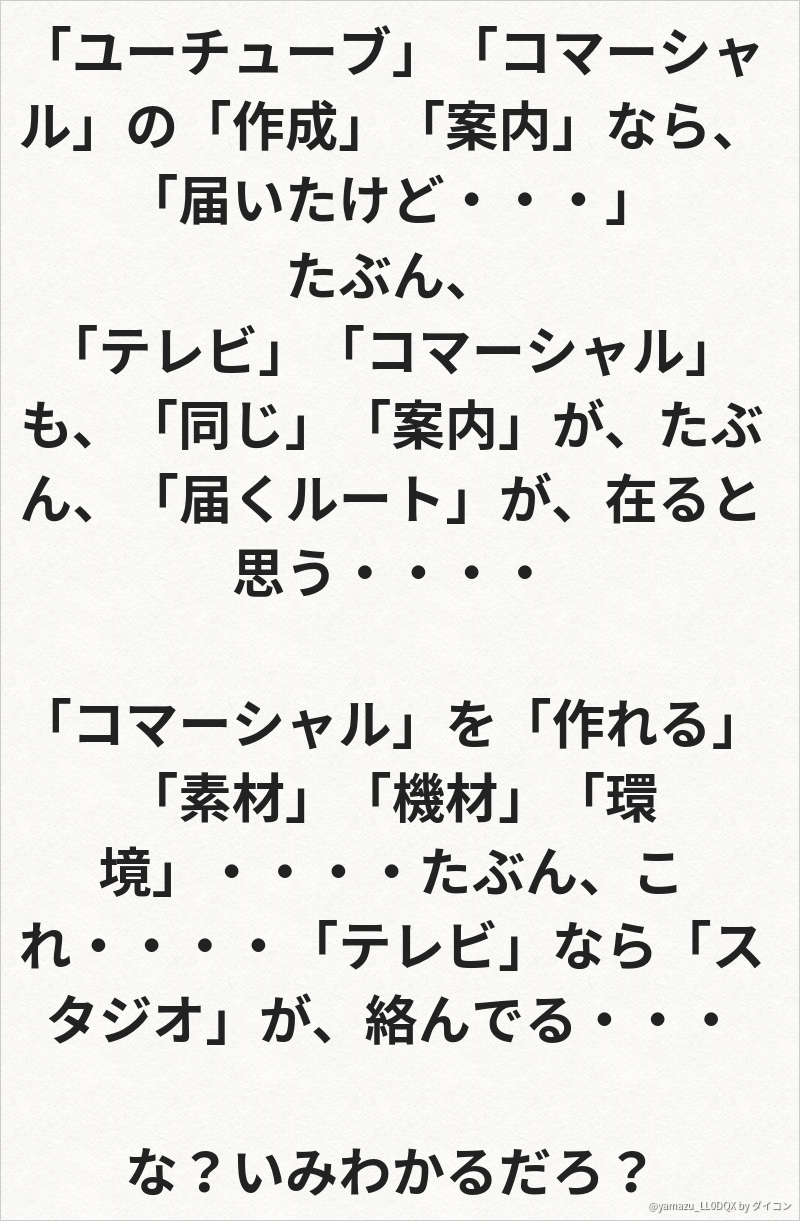 「ユーチューブ」「コマーシャ
ル」の「作成」「案内」なら、
「届いたけど・・・」
たぶん、
「テレビ」「コマーシャル」
も、「同じ」「案内」が、たぶ
ん、「届くルート」が、在ると
思う・・・・
「コマーシャル」を「作れる」
「素材」「機材」「環
境」・・・・たぶん、こ
れ・・・・「テレビ」なら「ス
タジオ」が、絡んでる・・・
な？いみわかるだろ？
@yamazu_LL0DQX by ダイコン